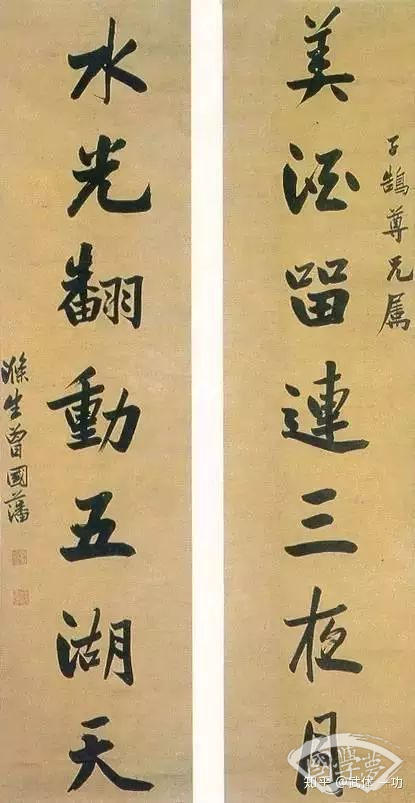 子鵠尊兄属
美酒留連三夜月
水光翻動五湖天
滌生曾國藩
國學夢
知乎